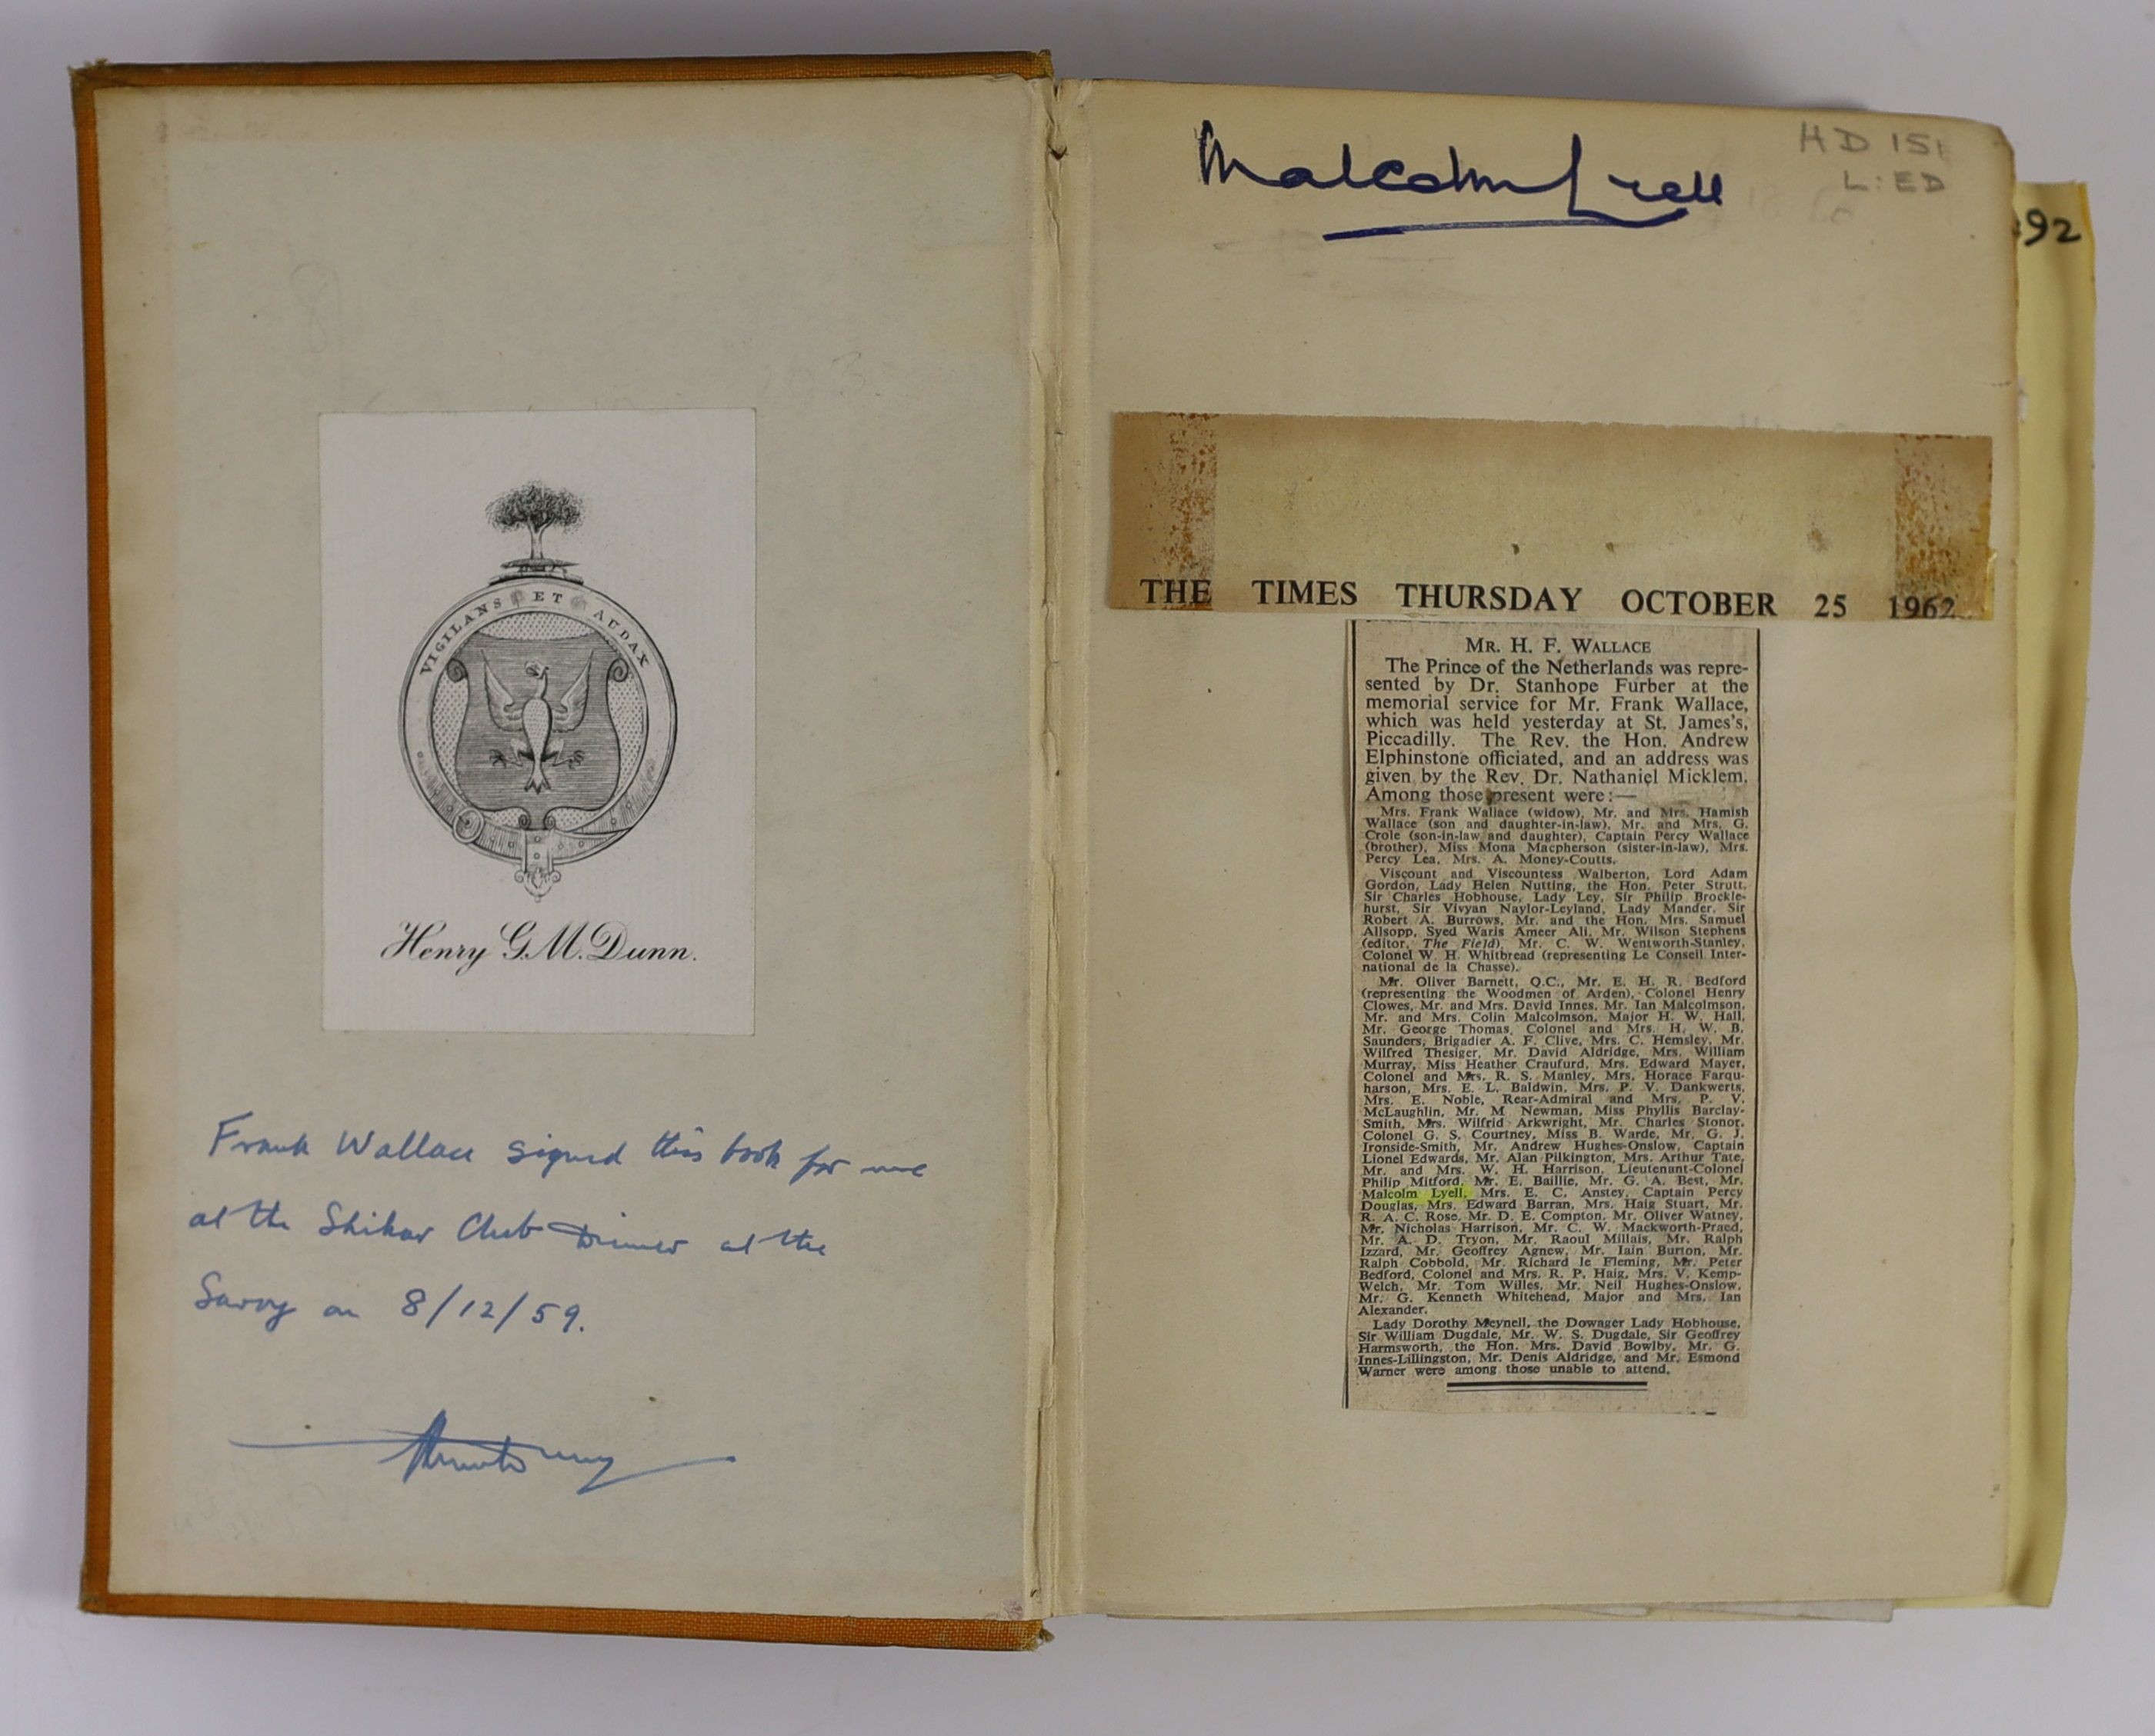 VIGILANS ET AUDAX
Henry G.M. Dunn.
Frank Wallace signed this book for me
at the Shikar Club Dinner at the
Savoy on 8/12/59.
Malcolm Lyell
HD 151
L:ED
92
THE TIMES THURSDAY OCTOBER 25 1962
MR. H. F. WALLACE
The Prince of the Netherlands was repre-
sented by Dr. Stanhope Furber at the
memorial service for Mr. Frank Wallace,
which was held yesterday at St. James's,
Piccadilly. The Rev. the Hon. Andrew
Elphinstone officiated, and an address was
given by the Rev. Dr. Nathaniel Micklem.
Among those present were:—
Mrs. Frank Wallace (widow), Mr. and Mrs. Hamish
Wallace (son and daughter-in-law), Mr. and Mrs. G.
Crole (son-in-law and daughter), Captain Percy Wallace
(brother), Miss Mona Macpherson (sister-in-law), Mrs.
Percy Lea, Mrs. A. Money-Coutts.
Viscount and Viscountess Walberton, Lord Adam
Gordon, Lady Helen Nutting, the Hon. Peter Strutt,
Sir Charles Hobhouse, Lady Ley, Sir Philip Brockle-
hurst, Sir Vivyan Naylor-Leyland, Lady Mander, Sir
Robert A. Burrows, Mr. and the Hon. Mrs. Samuel
Allsopp, Syed Waris Ameer Ali, Mr. Wilson Stephens
(editor, The Field), Mr. C. W. Wentworth-Stanley,
Colonel W. H. Whitbread (representing Le Conseil Inter-
national de la Chasse).
Mr. Oliver Barnett, Q.C., Mr. E. H. R. Bedford
(representing the Woodmen of Arden), Colonel Henry
Clowes, Mr. and Mrs. David Innes, Mr. Ian Malcolmson,
Mr. and Mrs. Colin Malcolmson, Major H. W. Hall,
Mr. George Thomas, Colonel and Mrs. H. W. B.
Saunders, Brigadier A. F. Clive, Mrs. C. Hemsley, Mr.
Wilfred Thesiger, Mr. David Aldridge, Mrs. William
Murray, Miss Heather Craufurd, Mrs. Edward Mayer,
Colonel and Mrs. R. S. Manley, Mrs. Horace Farqu-
harson, Mrs. E. L. Baldwin, Mrs. P. V. Dankwerts,
Mrs. E. Noble, Rear-Admiral and Mrs. P. V.
McLaughlin, Mr. M Newman, Miss Phyllis Barclay-
Smith, Mrs. Wilfrid Arkwright, Mr. Charles Stonor,
Colonel G. S. Courtney, Miss B. Warde, Mr. G. J.
Ironside-Smith, Mr. Andrew Hughes-Onslow, Captain
Lionel Edwards, Mr. Alan Pilkington, Mrs. Arthur Tate,
Mr. and Mrs. W. H. Harrison, Lieutenant-Colonel
Philip Mitford, Mr. E. Baillie, Mr. G. A. Best, Mr.
Malcolm Lyell, Mrs. E. C. Anstey, Captain Percy
Douglas, Mrs. Edward Barran, Mrs. Haig Stuart, Mr.
R. A. C. Rose, Mr. D. E. Compton, Mr. Oliver Watney,
Mr. Nicholas Harrison, Mr. C. W. Mackworth-Praed,
Mr. A. D. Tryon, Mr. Raoul Millais, Mr. Ralph
Izzard, Mr. Geoffrey Agnew, Mr. Iain Burton, Mr.
Ralph Cobbold, Mr. Richard le Fleming, Mr. Peter
Bedford, Colonel and Mrs. R. P. Haig, Mrs. V. Kemp-
Welch, Mr. Tom Willes, Mr. Neil Hughes-Onslow,
Mr. G. Kenneth Whitehead, Major and Mrs. Ian
Alexander.
Lady Dorothy Meynell, the Dowager Lady Hobhouse,
Sir William Dugdale, Mr. W. S. Dugdale, Sir Geoffrey
Harmsworth, the Hon. Mrs. David Bowlby, Mr. G.
Innes-Lillingston, Mr. Denis Aldridge, and Mr. Esmond
Warner were among those unable to attend.